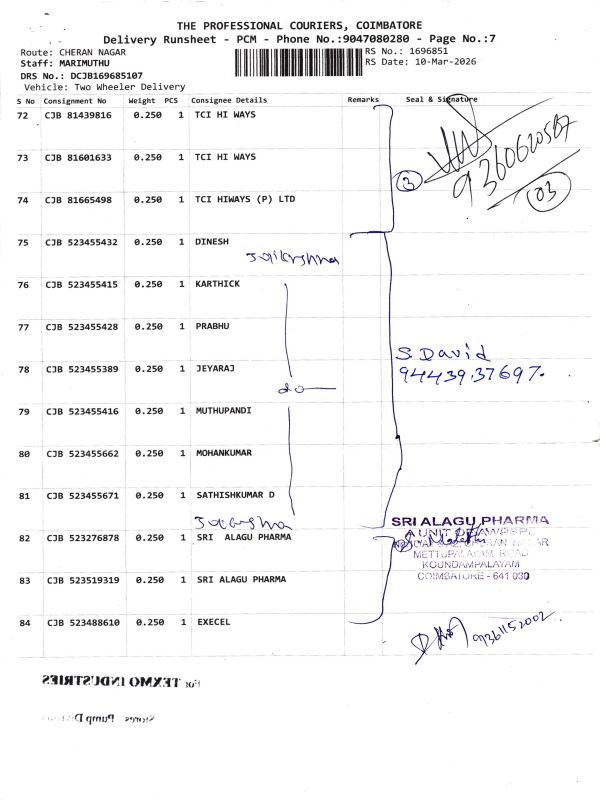 THE PROFESSIONAL COURIERS, COIMBATORE
Delivery Runsheet - PCM - Phone No.:9047080280 - Page No.:7
Route: CHERAN NAGAR
RS No.: 1696851
Staff: MARIMUTHU
RS Date: 10-Mar-2026
DRS No.: DCJB169685107
Vehicle: Two Wheeler Delivery
S No Consignment No Weight PCS Consignee Details Remarks Seal & Signature
72 CJB 81439816 0.250 1 TCI HI WAYS
73 CJB 81601633 0.250 1 TCI HI WAYS
3
9360620587
03
74 CJB 81665498 0.250 1 TCI HIWAYS (P) LTD
75 CJB 523455432 0.250 1 DINESH
Jaikrishna
76 CJB 523455415 0.250 1 KARTHICK
77 CJB 523455428 0.250 1 PRABHU
S David
78 CJB 523455389 0.250 1 JEYARAJ
94439.37697.
do
79 CJB 523455416 0.250 1 MUTHUPANDI
80 CJB 523455662 0.250 1 MOHANKUMAR
81 CJB 523455671 0.250 1 SATHISHKUMAR D
SRI ALAGU PHARMA
82 CJB 523276878 0.250 1 SRI ALAGU PHARMA
A UNIT OF
METTUPALAYAM ROAD
KOUNDAMPALAYAM
COIMBATORE - 641 030
83 CJB 523519319 0.250 1 SRI ALAGU PHARMA
84 CJB 523488610 0.250 1 EXECEL
9361152002
For TEXMO INDUSTRIES
Stores Pump